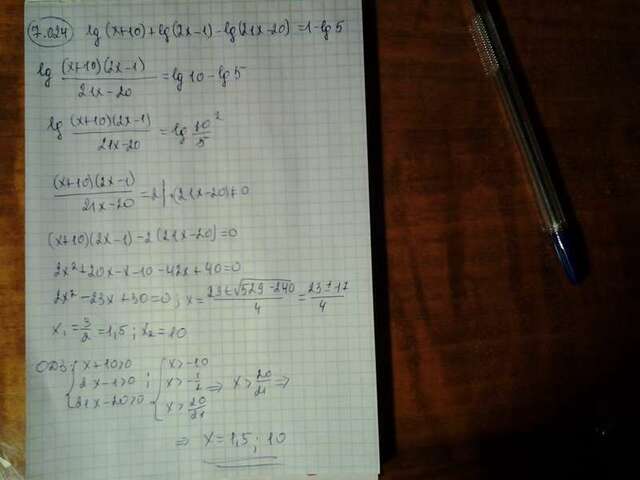 7.024 lg(x+10)+lg(2x-1)-lg(21x-20)=1-lg5
lg (x+10)(2x-1)/21x-20 = lg10-lg5
lg (x+10)(2x-1)/21x-20 = lg 10/5 2
(x+10)(2x-1)/21x-20 = 2 | ·(21x-20)≠0
(x+10)(2x-1)-2(21x-20)=0
2x²+20x-x-10-42x+40=0
2x²-23x+30=0; x= 23±√529-240/4 = 23±17/4
x₁=3/2=1,5; x₂=10
ОДЗ: { x+10>0 2x-1>0 21x-20>0 ; { x>-10 x>1/2 x>20/21 ⇒ x>20/21 ⇒
⇒ x=1,5; 10